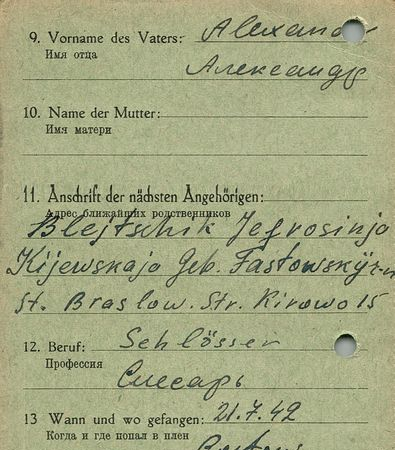 9. Vorname des Vaters: Alexander
Имя отца
Александр
10. Name der Mutter:
Имя матери
11. Anschrift der nächsten Angehörigen:
Адрес ближайших родственников
Blejtschik Jefrosinja
Kijewskaja Geb. Fastowskij r-n
St. Braslow. Str. Kirowo 15
12. Beruf: Schlösser
Профессия
Слесарь
13 Wann und wo gefangen: 21.7.42
Когда и где попал в плен